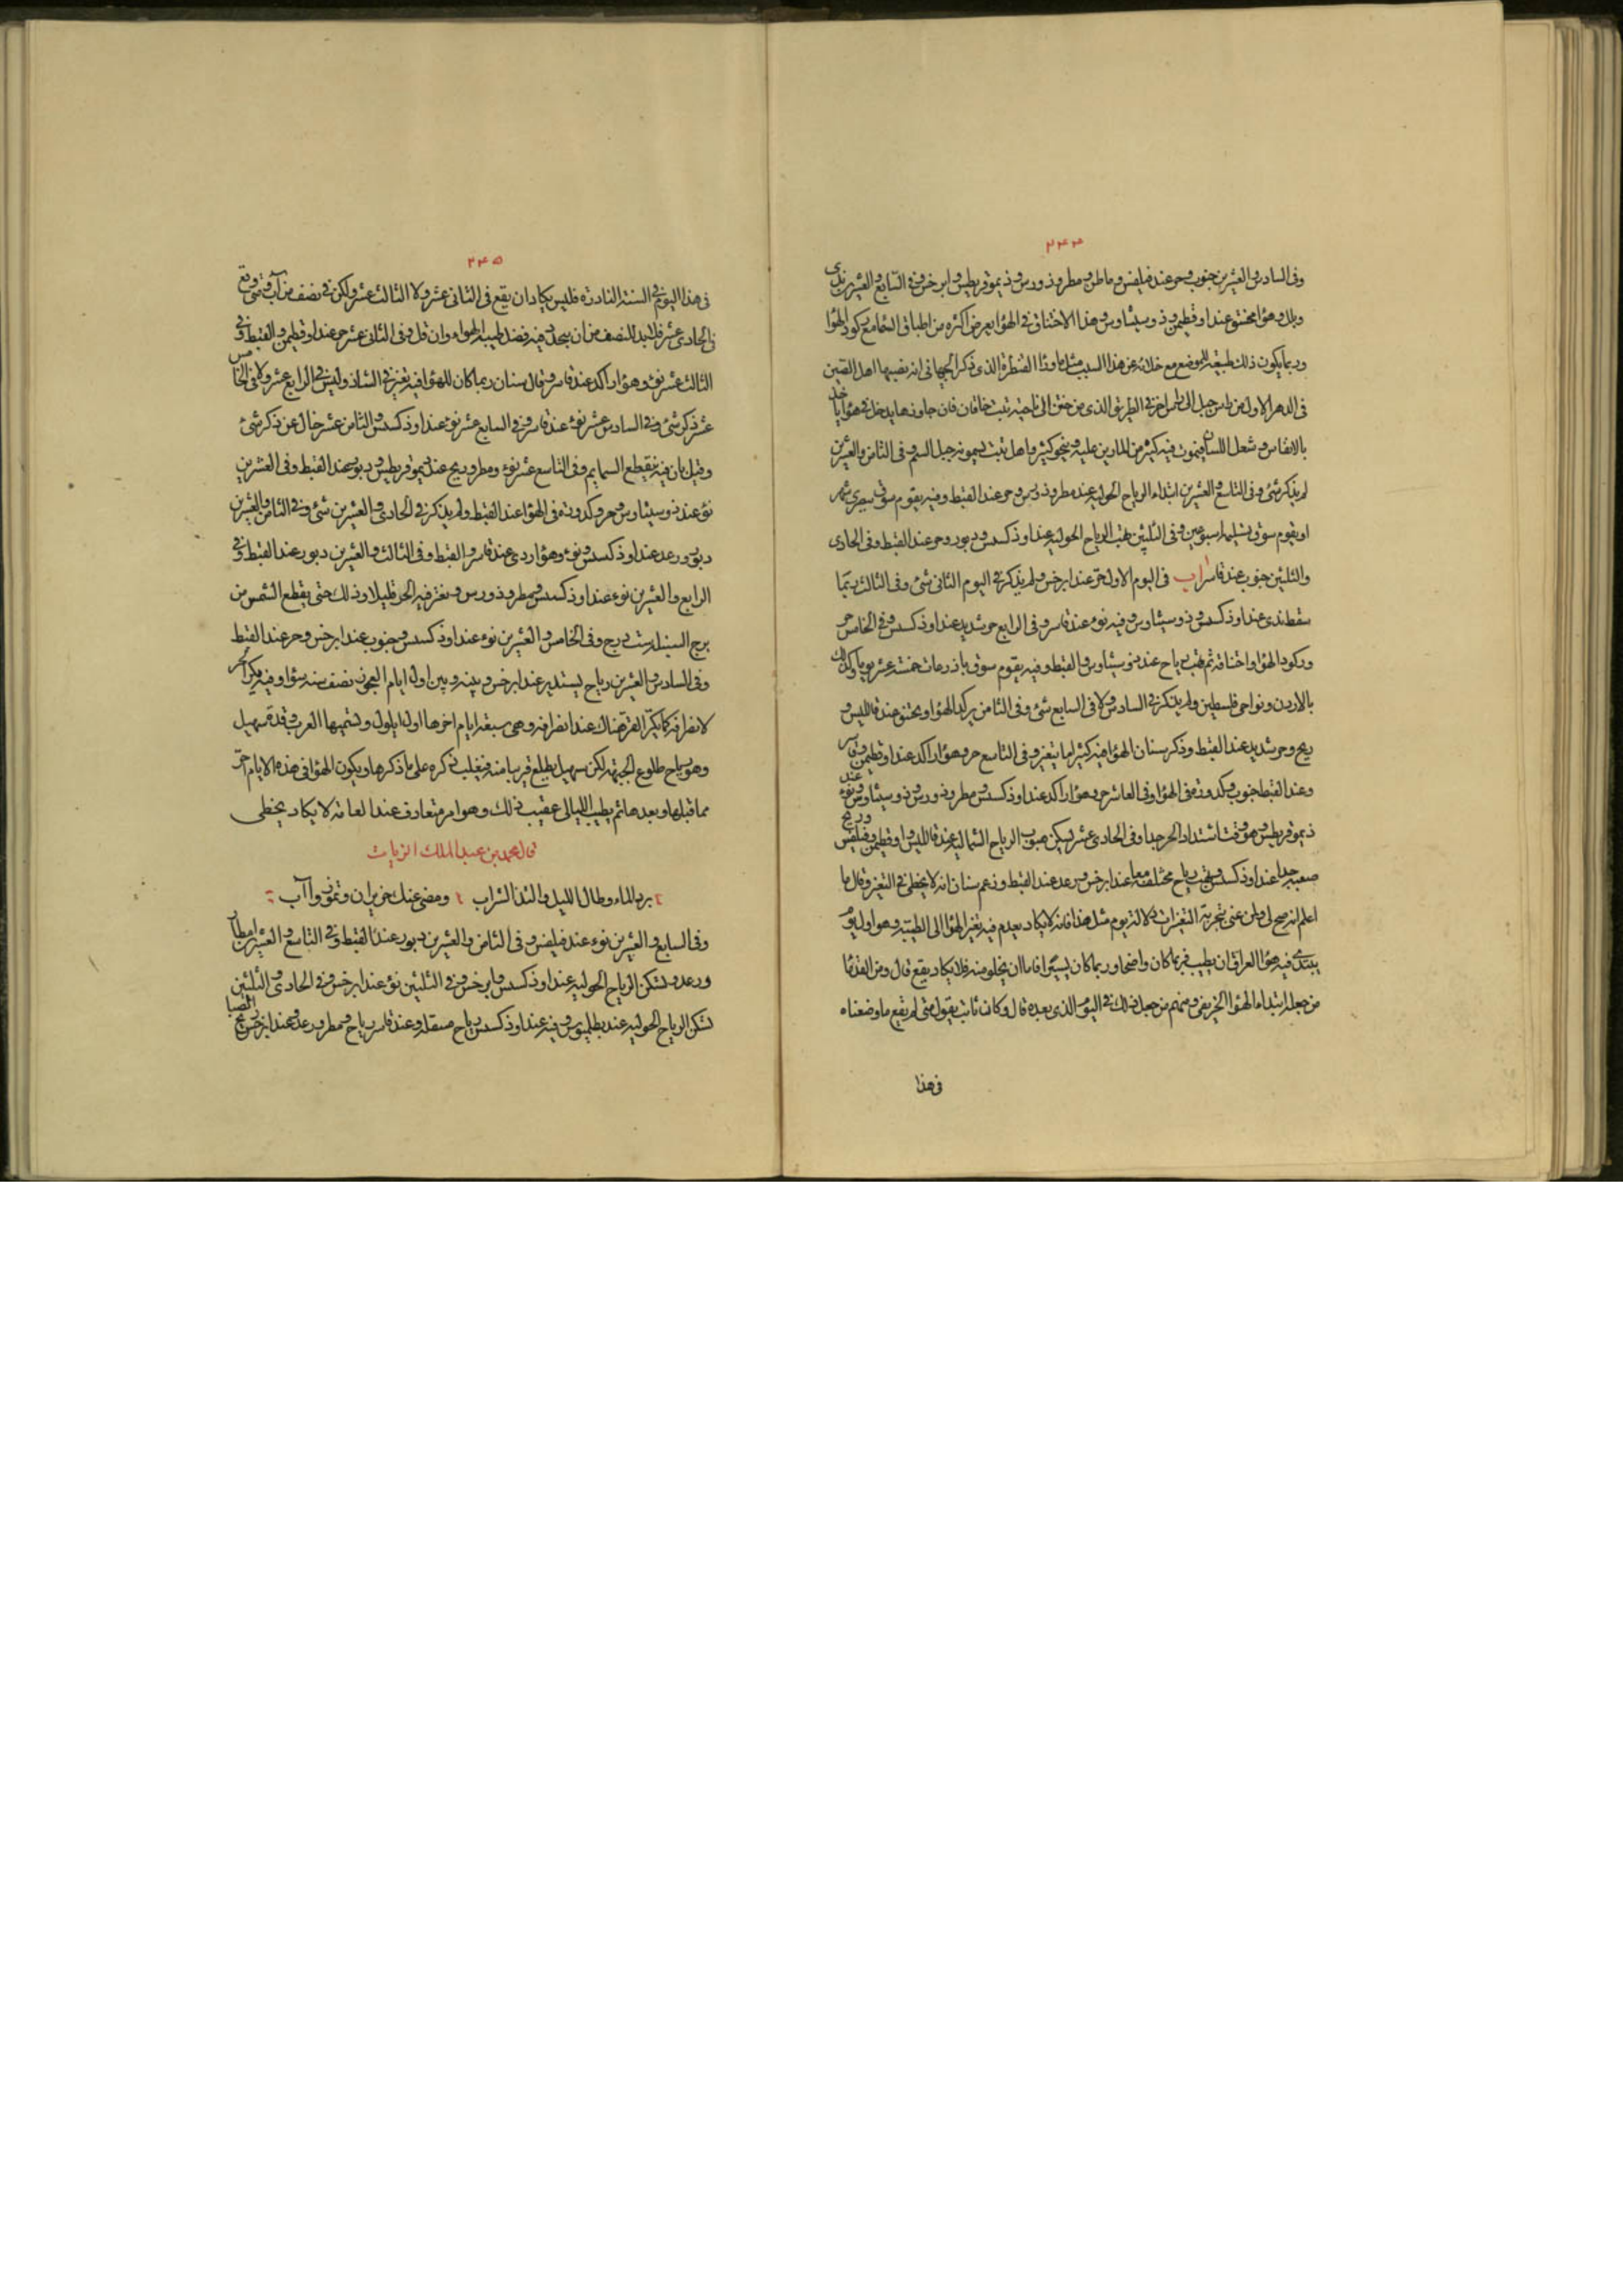 ٢٤٤
وفى السادس والعشرين جنوب وحر عند فيلبس وماطن ومطر وذورس وذيموقريطس وابرخس وفى السابع والعشرين ندى
وبلل وهوا مختنق عند اوقطيمن وذوسيثاوس وهذا الاختناق فى الهوا يعرض اكثره من اطباق السما مع ركود الهوا
وربما يكون ذلك طبيعة للموضع مع خلائه عن هذا السبب مثل ما وراء القنطرة الذى ذكر الجيهانى انه نصبها اهل الصين
فى الدهر الاول من راس جبل الى راس اخر فى الطريق الذى من ختن الى ناحية تبت خاقان فان جاوزها يدخل فى هوا ياخذ
بالانفاس وشعل اللسان فيموت فيه كثير من المارين عليه وينجو كثير واهل تبت يسمونه جبل السم وفى الثامن والعشرين
لم يذكر شئ وفى التاسع والعشرين ابتداء الرياح الحولية عند مطروذورس وحر عند القبط وفيه يقوم سوق بصرى شهر
او يقوم سوق بسليما اسبوعين وفى الثلثين هبت الرياح الحولية عند اوذكسس ودبور وحر عند القبط وفى الحادى
والثلثين جنوب عند قاسر اب فى اليوم الاول حر عند ابرخس ولم يذكر فى اليوم الثانى شئ وفى الثالث ربما
سقط ندى عند اوذكسس وذوسيثاوس وفيه نوء عند قاسر وفى الرابع حر شديد عند اوذكسس وفى الخامس حر
وركود الهوا واختناقه ثم هب رياح عند ذوسيثاوس والقبط وفيه يقوم سوق باذرعات خمسة عشر يوما وكذلك
بالاردن ونواحى فلسطين ولم يذكر فى السادس ولا فى السابع شئ وفى الثامن يركد الهوا ويختنق عند قالليس و
ريح وحر شديد عند القبط وذكر سنان الهوا فيه كثيرا ما يتغير وفى التاسع حر وهوا راكد عند اوقطيمن وقاسر
وعند القبط جنوب وكدورة فى الهوا وفى العاشر حر وهوا راكد عند اوذكسس ومطروذورس وذوسيثاوس ونوء عند
ذيموقريطس وهو وقت اشتداد الحر جدا وفى الحادى عشر يسكن هبوب الرياح الشمالية عند قالليس واوقطيمن وفيلبس وريح
صعبة جدا عند اوذكسس وتهب رياح مختلفة معا عند ابرخس ورعد عند القبط وزعم سنان انه لا يخطى فى التغير وقال ما
اعلم انه صح لى ولمن عنى بتجربة التغيرات دلالة يوم مثل هذا فانه لا يكاد يعدم فيه تغير الهوا الى الطيبة وهو اول يوم
يبتدى فيه هوا العراق ان يطيب فربما كان واضحا وربما كان يسيرا فاما ان يخلو منه فلا يكاد يقع قال ومن القدما
من جعله ابتداء الهوا الخريفى ومنهم من جعل ذلك فى اليوم الذى بعده قال وكان ثابت يقول متى لم يقع ما وضعناه
فى هذا
٢٤٥
فى هذا اليوم فى السنة النادرة فليس يكاد ان يقع فى الثانى عشر ولا الثالث عشر ولكن فى نصف من آب ومتى وقع
فى الحادى عشر فلا بد للنصف من ان يتجدد فيه فضل طيبة الهواء وان قل وفى الثانى عشر حر عند اوقطيمن والقبط وفى
الثالث عشر نوء وهوا راكد عند قاسر وقال سنان ربما كان للهوا فيه تغير فى الشاذ وليس فى الرابع عشر ولا فى الخامس
عشر ذكر شئ وفى السادس عشر نوء عند قاسر وفى السابع عشر نوء عند اوذكسس والثامن عشر خال عن ذكر شئ
وقيل بان فيه ينقطع السمايم وفى التاسع عشر نوء ومطر وريح عند ذيموقريطس ودبور عند القبط وفى العشرين
نوء عند ذوسيثاوس وحر وكدورة فى الهوا عند القبط ولم يذكر فى الحادى والعشرين شئ وفى الثامن والعشرين
دبور ورعد عند اوذكسس ونوء وهوا ردى عند قاسر والقبط وفى الثالث والعشرين دبور عند القبط وفى
الرابع والعشرين نوء عند اوذكسس ومطروذورس ويفتر فيه الحر قليلا وذلك حتى يقطع الشمس من
برج السنبلة ست درج وفى الخامس والعشرين نوء عند اوذكسس وجنوب عند ابرخس وحر عند القبط
وفى السادس والعشرين رياح يستدير عند ابرخس وبينه وبين اول ايام العجوز نصف سنة سؤا وفيه يكر الحر
لانصرافه كما يكر القر هناك عند انصرافه وهى سبعة ايام اخرها اول ايلول ويسميها العرب وقدة سهيل
وهو رياح طلوع الجبهة لكن سهيل يطلع قريبا منه فيغلب ذكره على ما ذكرها ويكون الهوا فى هذه الايام احر
مما قبلها وبعدها ثم يطيب الليالى عقيب ذلك وهو امر متعارف عند العامة لا يكاد يخطى
قال محمد بن عبد الملك الزيات
برد الماء وطال الليل والتذ الشراب ومضى عنك حزيران وتموز وآب
وفى السابع والعشرين نوء عند فيلبس وفى الثامن والعشرين دبور عند القبط وفى التاسع والعشرين امطار
ورعد وتسكن الرياح الحولية عند اوذكسس وابرخس وفى الثلثين نوء عند ابرخس وفى الحادى والثلثين
تسكن الرياح الحولية عند بطلميوس وفيه عند اوذكسس رياح منتقلة وعند قاسر رياح ومطر ورعد وعند ابرخس ريح الصبا